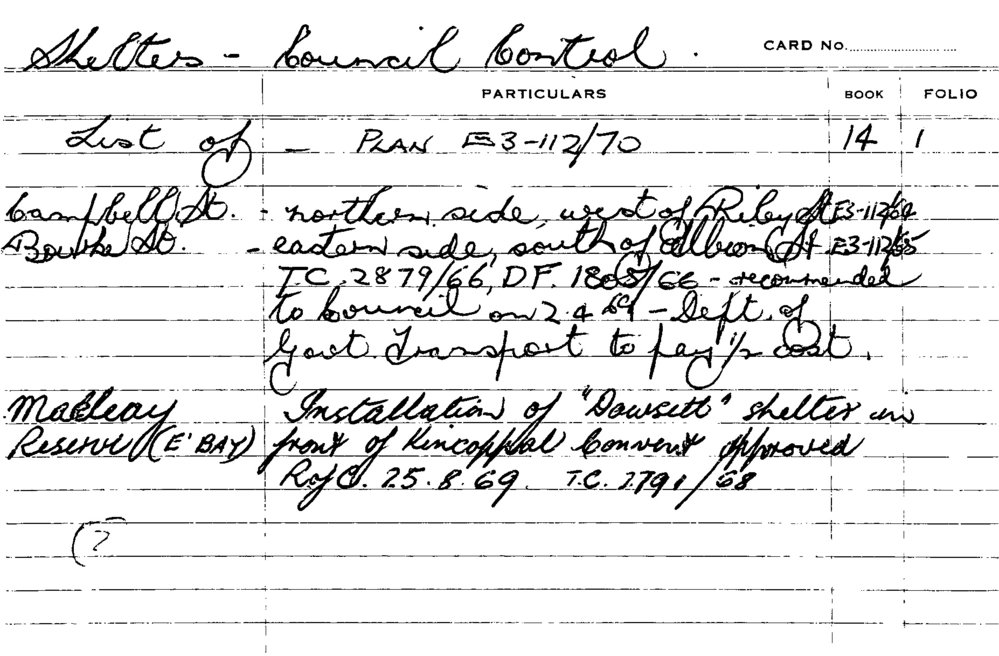 Shelters - Council Control. CARD No.
PARTICULARS BOOK FOLIO
List of - PLAN E3-112/70 14 1
Campbell St. - northern side, west of Riley St E3-112/64
Bourke St. - eastern side, south of Albion St E3-112/65
T.C. 2879/66, D.F. 1808/66 - recommended
to Council on 2.4.69 - Dept. of
Govt. Transport to pay 1/2 cost.
Macleay Installation of "Dowsett" shelter in
Reserve (E'BAY) front of Kincoppal Convent approved
R of C. 25.8.69. T.C. 2791/68
(?